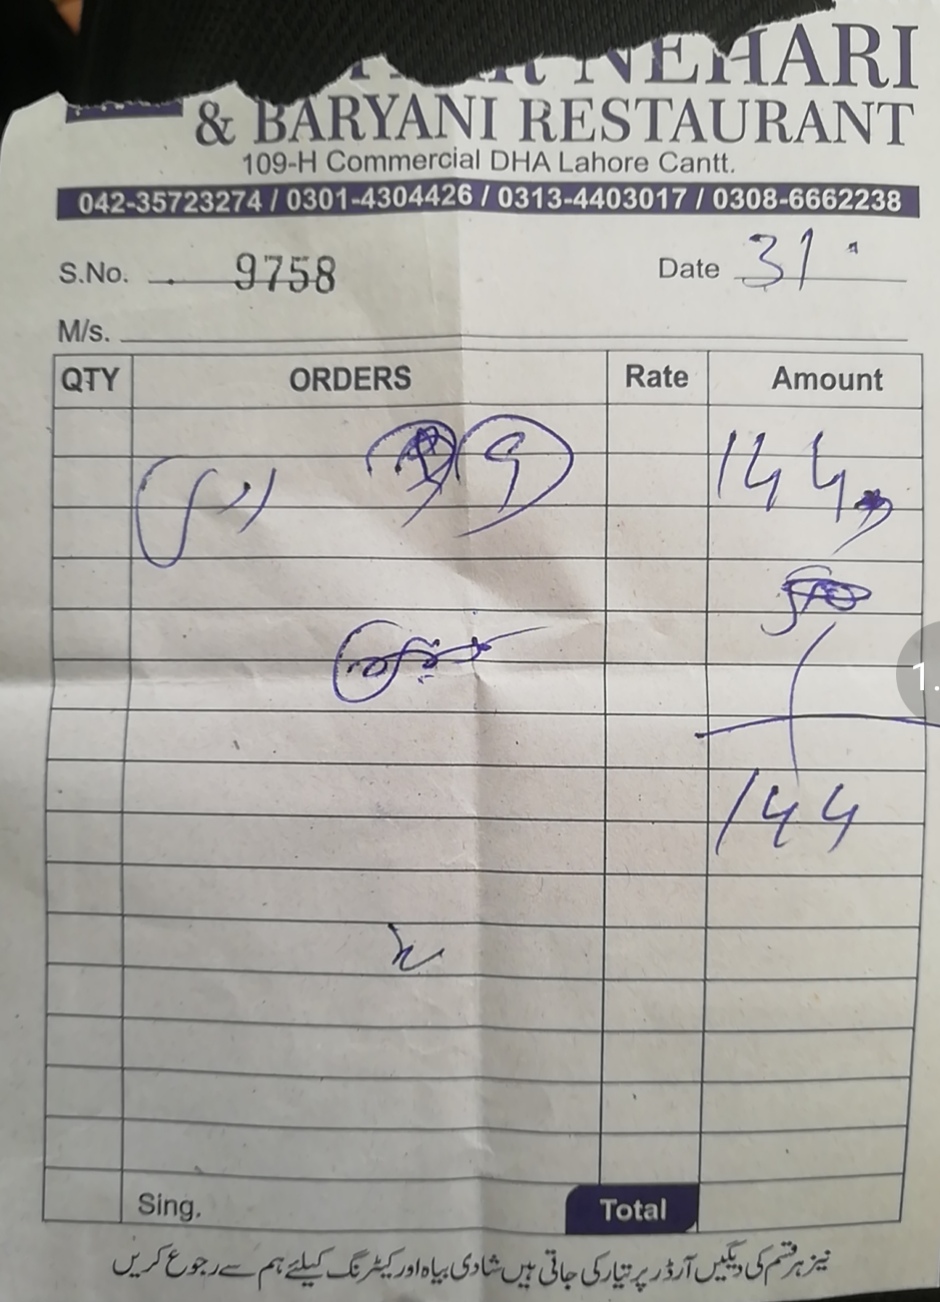 NEHARI
& BARYANI RESTAURANT
109-H Commercial DHA Lahore Cantt.
042-35723274 / 0301-4304426 / 0313-4403017 / 0308-6662238
S.No. 9758 Date 31
M/s.
QTY ORDERS Rate Amount
144
144
Sing. Total
نیز ہر قسم کی دیگیں آرڈر پر تیار کی جاتی ہیں شادی بیاہ اور کیٹرنگ کیلئے ہم سے رجوع کریں